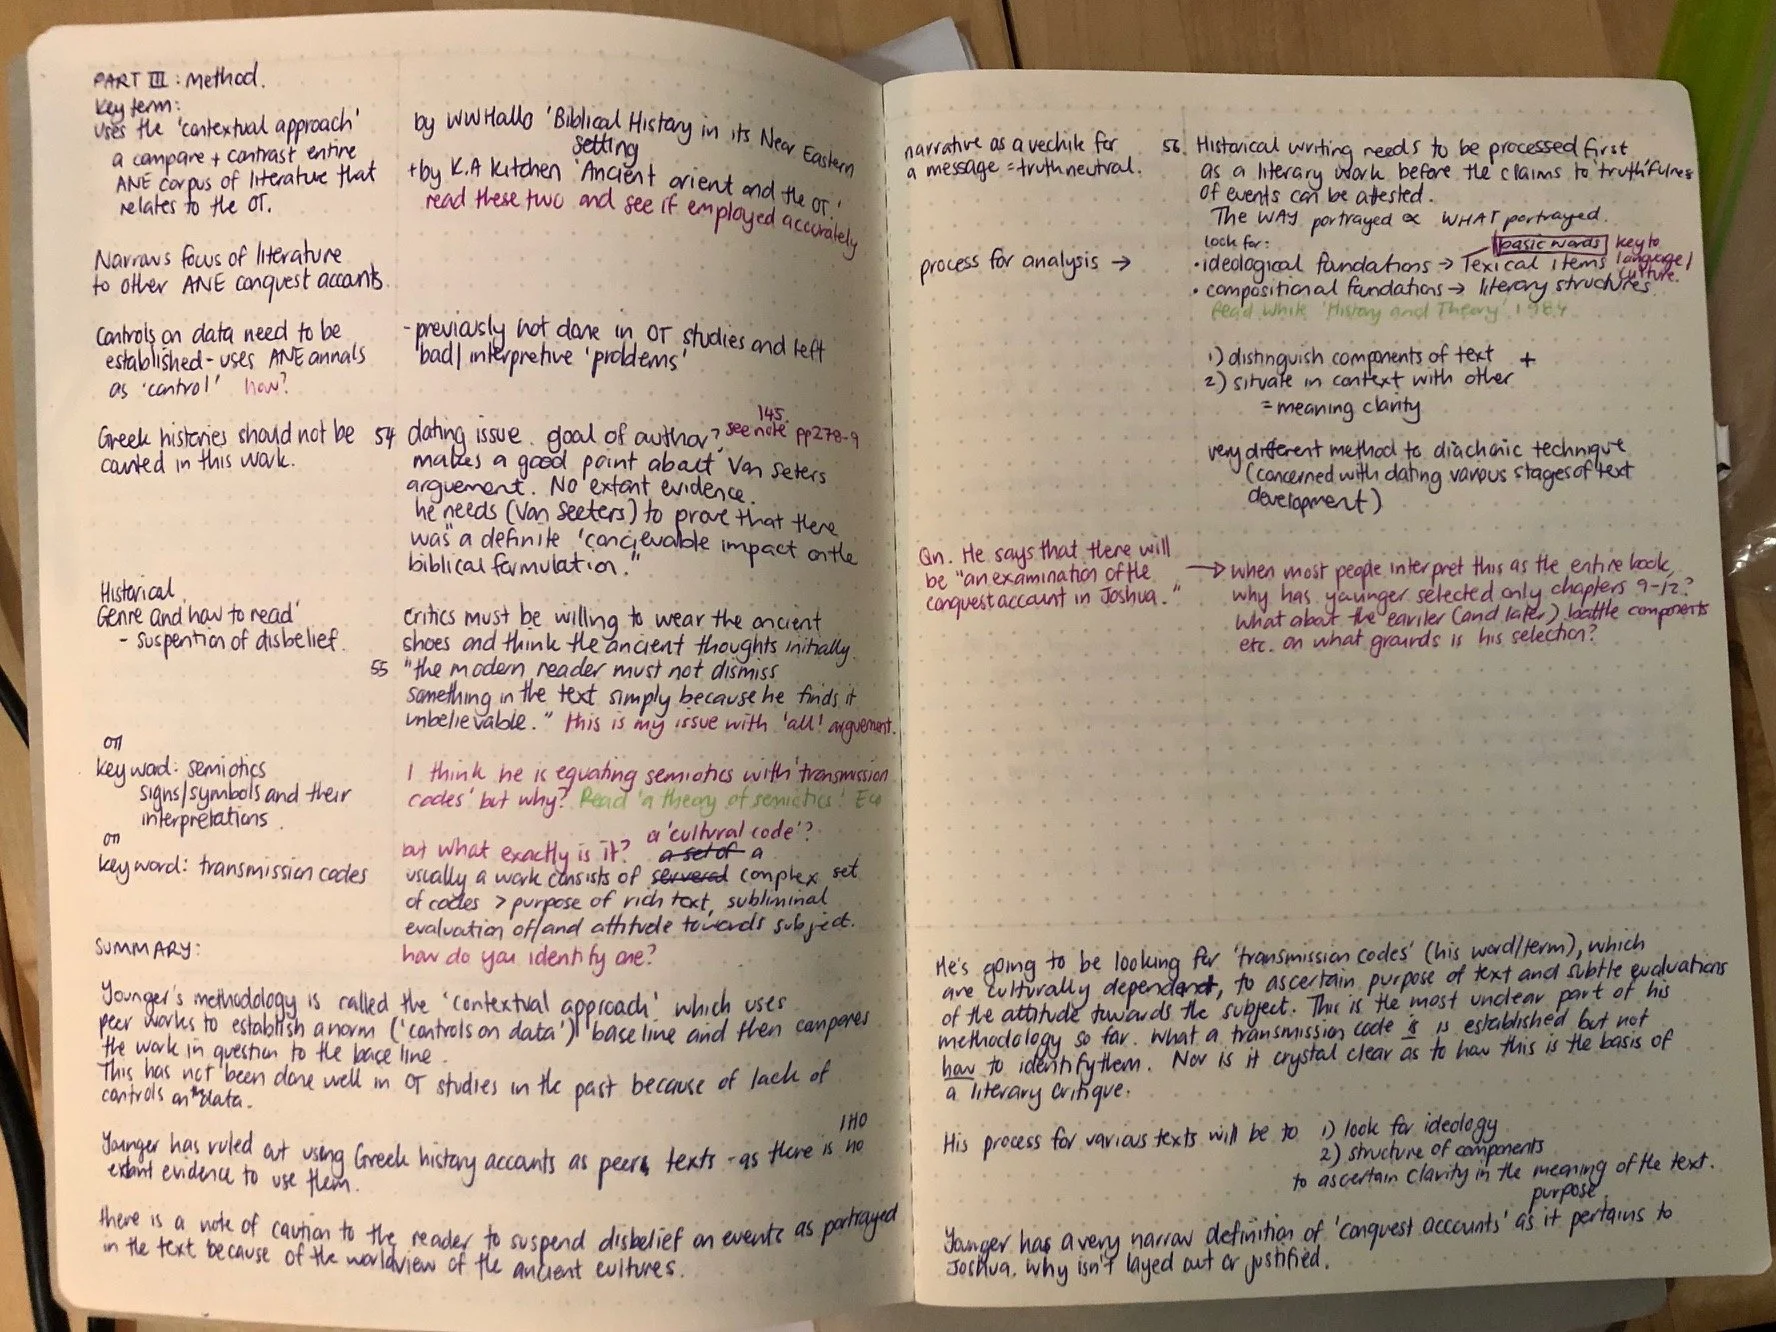 PART III : Method.
key term:
uses the 'contextual approach'
a compare + contrast entire
ANE corpus of literature that
relates to the OT.
by WWHallo 'Biblical History in its Near Eastern
setting
+by K.A Kitchen 'Ancient orient and the OT.'
read these two and see if employed accurately
Narrows focus of literature
to other ANE conquest accounts.
Controls on data need to be
established - uses ANE annals
as 'control' how?
- previously not done in OT studies and left
'bad/interpretive 'problems'
Greek histories should not be
counted in this work.
54 dating issue. goal of author? see note 145. pp278-9
makes a good point about Van Seters
arguement. No extant evidence.
he needs (Van Seeters) to prove that there
was "a definite 'concievable impact on the
biblical formulation."
Historical
Genre and how to read'
- suspention of disbelief.
critics must be willing to wear the ancient
shoes and think the ancient thoughts initially.
55 "the modern reader must not dismiss
something in the text simply because he finds it
unbelievable." this is my issue with 'all' arguement.
on
key word: semiotics
signs/symbols and their
interpretations.
I think he is equating semiotics with 'transmission
codes' but why? Read 'a theory of semiotics' Eco
on
keyword: transmission codes
but what exactly is it? a 'cultural code'?
a set of a
usually a work consists of serveral complex set
of codes > purpose of rich text, subliminal
evaluation of/and attitude towards subject.
how do you identify one?
SUMMARY:
Younger's methodology is called the 'contextual approach' which uses
peer works to establish a norm ('controls on data') baseline and then compares
the work in question to the base line.
This has not been done well in OT studies in the past because of lack of
controls on the data.
Younger has ruled out using Greek history accounts as peer texts - as there is IHO no
extant evidence to use them.
there is a note of caution to the reader to suspend disbelief on events as portrayed
in the text because of the worldview of the ancient cultures.
narrative as a vechile for
a message = truth neutral.
56. Historical writing needs to be processed first
as a literary work before the claims to 'truth'fulness
of events can be attested.
The WAY portrayed ∝ WHAT portrayed.
process for analysis →
look for:
basic words key to language/culture.
• ideological foundations → lexical items
• compositional foundations → literary structures
Read White 'History and Theory' 1984
1) distinguish components of text +
2) situate in context with other
= meaning clarity
very different method to diachonic technique
(concerned with dating various stages of text
development)
Qn. He says that there will
be "an examination of the
conquest account in Joshua."
→ when most people interpret this as the entire book,
why has younger selected only chapters 9-12?
what about the eariler (and later) battle components
etc. on what grounds is his selection?
He's going to be looking for 'transmission codes' (his word/term), which
are culturally dependent, to ascertain purpose of text and subtle evaluations
of the attitude towards the subject. This is the most unclear part of his
methodology so far. What a transmission code is is established but not
how to identify them. Nor is it crystal clear as to how this is the basis of
a literary critique.
His process for various texts will be to 1) look for ideology
2) structure of components
to ascertain clarity in the meaning of the text.
purpose
Younger has a very narrow definition of 'conquest accounts' as it pertains to
Joshua. Why isn't layed out or justified.